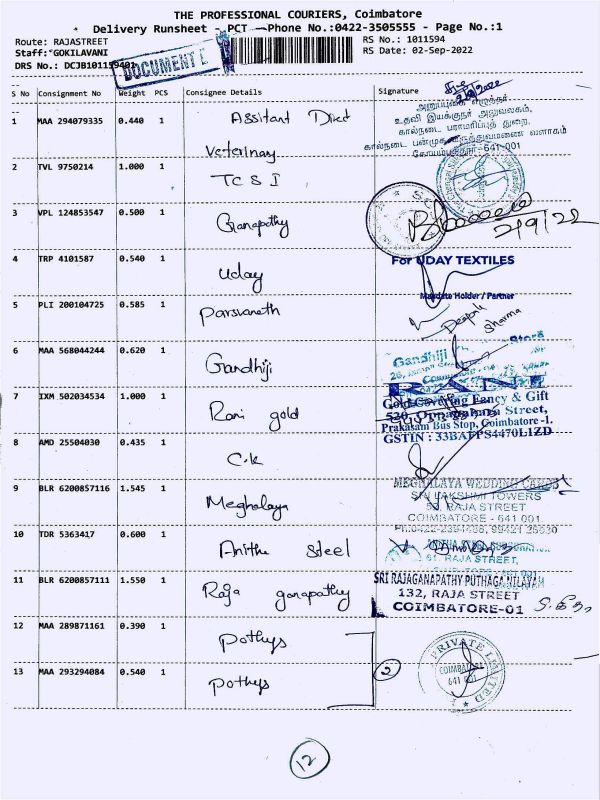 THE PROFESSIONAL COURIERS, Coimbatore
Delivery Runsheet - PCT - Phone No.:0422-3505555 - Page No.:1
Route: RAJASTREET
RS No.: 1011594
Staff: GOKILAVANI
RS Date: 02-Sep-2022
DRS No.: DCJB101159401
DOCUMENT
S No Consignment No Weight PCS Consignee Details Signature
1 MAA 294079335 0.440 1 Assitant Direct
Veterinary
அனுப்புகை எழுத்தர்
உதவி இயக்குநர் அலுவலகம்,
கால்நடை பராமரிப்புத் துறை,
கால்நடை பன்முக மருத்துவமனை வளாகம்
கோயம்புத்தூர்-641 001
2 TVL 9750214 1.000 1 TC & I
3 VPL 124853547 0.500 1 Ganapathy
2/9/22
4 TRP 4101587 0.540 1 Uday
For UDAY TEXTILES
Mandate Holder / Partner
5 PLI 200104725 0.585 1 Parsvaneth
Deepak Sharma
6 MAA 568044244 0.620 1 Gandhiji
Gandhiji Store
7 IXM 502034534 1.000 1 Rani gold
RANI
Gold Covering Fancy & Gift
Street,
Prakasam Bus Stop, Coimbatore-1.
GSTIN : 33BAFPS4470L1ZD
8 AMD 25504030 0.435 1 C.K
9 BLR 6200857116 1.545 1 Meghalaya
MEGHALAYA WEDDING CARDS
SRI LAKSHMI TOWERS
RAJA STREET
COIMBATORE - 641 001
10 TDR 5363417 0.600 1 Anitha Steel
61, RAJA STREET,
11 BLR 6200857111 1.550 1 Raja ganapathy
SRI RAJAGANAPATHY PUTHAGA NILAYAM
132, RAJA STREET
COIMBATORE-01
12 MAA 289871161 0.390 1 Pothys
13 MAA 293294084 0.540 1 Pothys
2
PRIVATE LIMITED
COIMBATORE
641 001
12